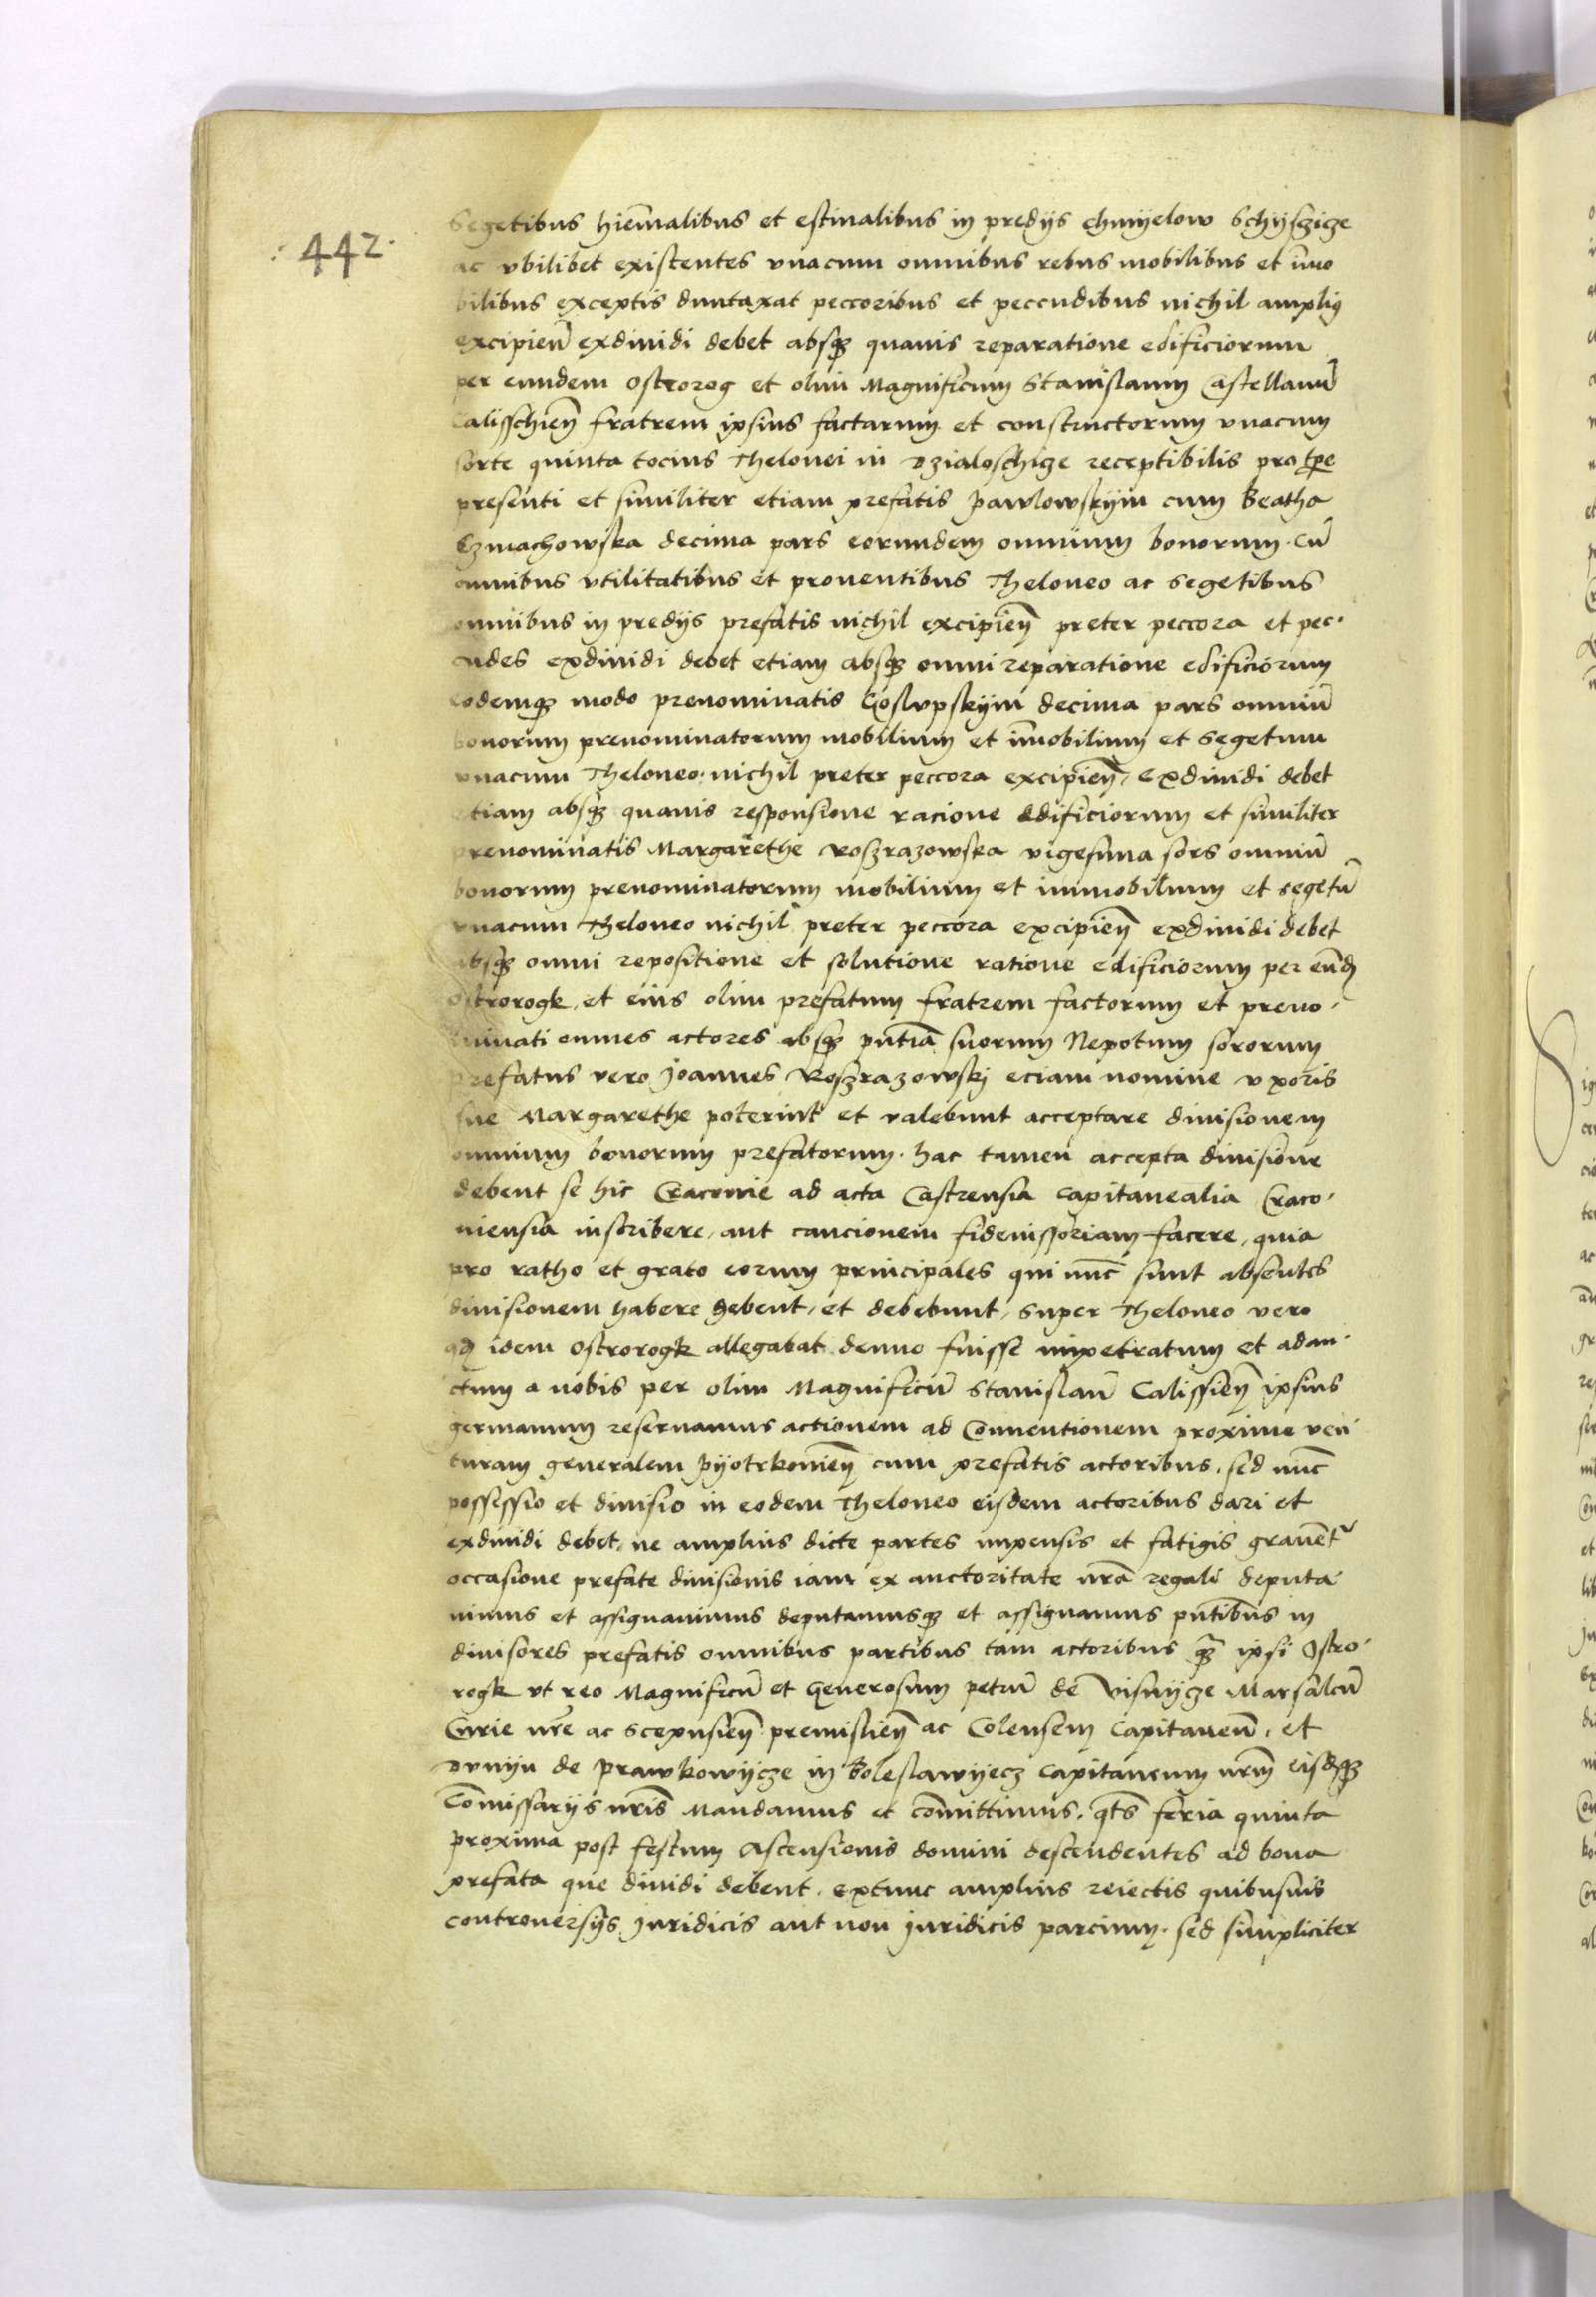 : 442 ·
Segetibus hiem̄alibus et estiualibus in predijs Chmyelow Schyszicze
ac vbilibet existentes vnacum omnibus rebus mobilibus et im̄o
bilibus exceptis duntaxat peccoribus et peccudibus nichil ampliꝰ
excipien̄ exdiuidi debet absqꝫ quauis reparatione edificiorum
per eundem Ostrorog et olim Magnificum Stanislaum Castellanū
Calisschien̄ fratrem ipsius factarum et constructorum vnacum
sorte quinta tocius Thelonei in Dzialoschicze receptibilis pro tp̄e
presenti et similiter etiam prefatis Pawlowskym cum Beatha
Czmachowska decima pars eorundem omnium bonorum cū
omnibus vtilitatibus et prouentibus Theloneo ac segetibus
omnibus in predijs prefatis nichil excipien̄ preter peccora et pec·
cudes exdiuidi debet etiam absqꝫ omni reparatione edificiorum
eodemqꝫ modo prenominatis Goslvpskym decima pars omniū
bonorum prenominatorum mobilium et im̄obilium et segetum
vnacum Theloneo nichil preter peccora excipien̄, Exdiuidi debet
etiam absqꝫ quauis responsione racione edificiorum et similiter
prenominatis Margarethe Roszrazowska vigesima sors omniū
bonorum prenominatorum mobilium et immobilium et segetū
vnacum Theloneo nichil preter peccora excipien̄ exdiuidi debet
absqꝫ omni repositione et solutione ratione edificiorum per eund̄
Ostrorogk, et eius olim prefatum fratrem factorum et preno·
minati omnes actores absqꝫ pn̄tia suorum Nepotum sororum
prefatus vero Joannes Roszrazowskj eciam nomine vxoris
sue Margarethe poterint et valebunt acceptare diuisionem
omnium bonorum prefatorum. hac tamen accepta diuisione
debent se hic Cracouie ad acta Castrensia Capitanealia Craco·
uiensia inscribere, aut caucionem fideiussoriam facere, quia
pro ratho et grato eorum principales qui nūc sunt absentes
diuisionem habere debent, et debebunt, super Theloneo vero
qd̄ idem Ostrorogk allegabat denuo fuisse impetratum et adau·
ctum a nobis per olim Magnificū Stanislaū Calissien̄ ipsius
germanum reseruamus actionem ad Conuentionem proxime ven·
turam generalem Pyotrkouien̄ cum prefatis actoribus. sed nūc
possessio et diuisio in eodem Theloneo eisdem actoribus dari et
exdiuidi debet, ne amplius dicte partes impensis et fatigis grauent᷑
occasione prefate diuisionis iam ex auctoritate nr̄a regali deputa·
uimus et assignauimus deputamusqꝫ et assignamus pn̄tibus in
diuisores prefatis omnibus partibus tam actoribus qꝫ ipsi Ostro·
rogk vt reo Magnificū et Generosum petrū de Visnycze Marsalcū
Curie nr̄e ac Scepusien̄ premislien̄ ac Colensem Capitaneū, et
Dunyn de Prawkowycze in Boleslawyecz Capitaneum nr̄m eisdqꝫ
Com̄issarijs nr̄is Mandamus et com̄ittimus. qts̄ feria quinta
proxima post festum Ascensionis domini descendentes ad bona
prefata que diuidi debent. extunc amplius reiectis quibusuis
controuersijs juridicis aut non juridicis parcium. sed simpliciter